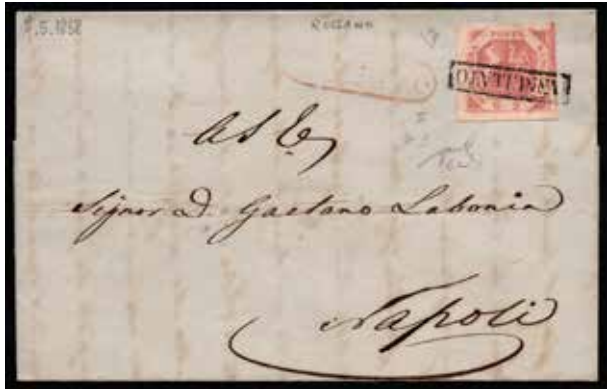 9.5.1858
ROSSANO
ANNULLATO
A S. E.
Signor D. Gaetano Labonia
Napoli